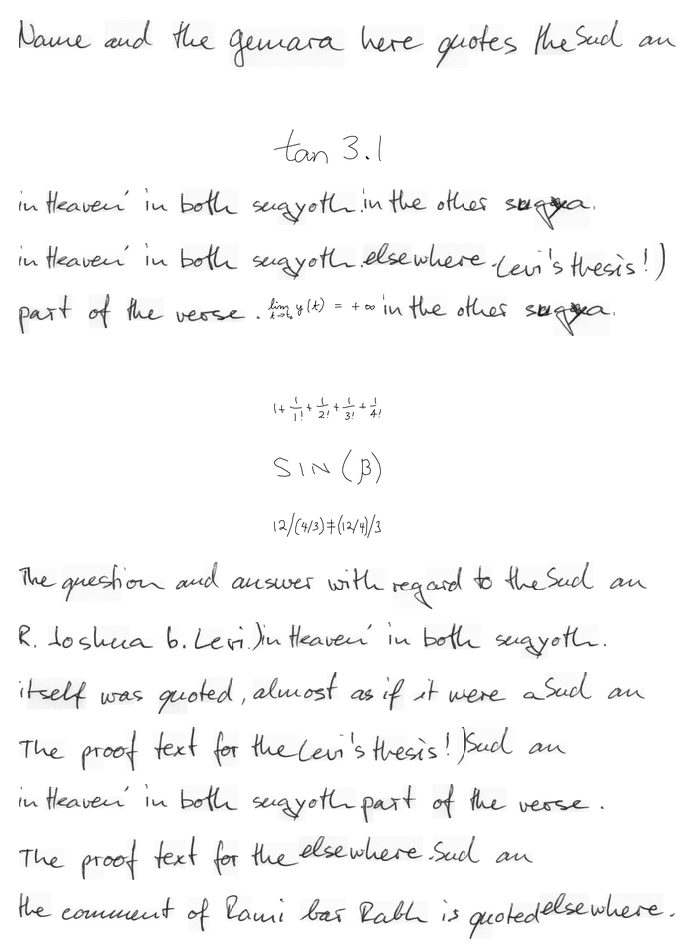 Name and the gemara here quotes the Sud an
tan 3.1
in Heaven' in both sugyoth. in the other sugya.
in Heaven' in both sugyoth. elsewhere. Levi's thesis!)
part of the verse. lim t→t₀ y(t) = +∞ in the other sugya.
1 + 1/1! + 1/2! + 1/3! + 1/4!
SIN (β)
12/(4/3)≠(12/4)/3
The question and answer with regard to the Sud an
R. Joshua b. Levi.) in Heaven' in both sugyoth.
itself was quoted, almost as if it were a Sud an
The proof text for the Levi's thesis!) Sud an
in Heaven' in both sugyoth part of the verse.
The proof text for the elsewhere. Sud an
the comment of Rami bar Rabh is quoted elsewhere.